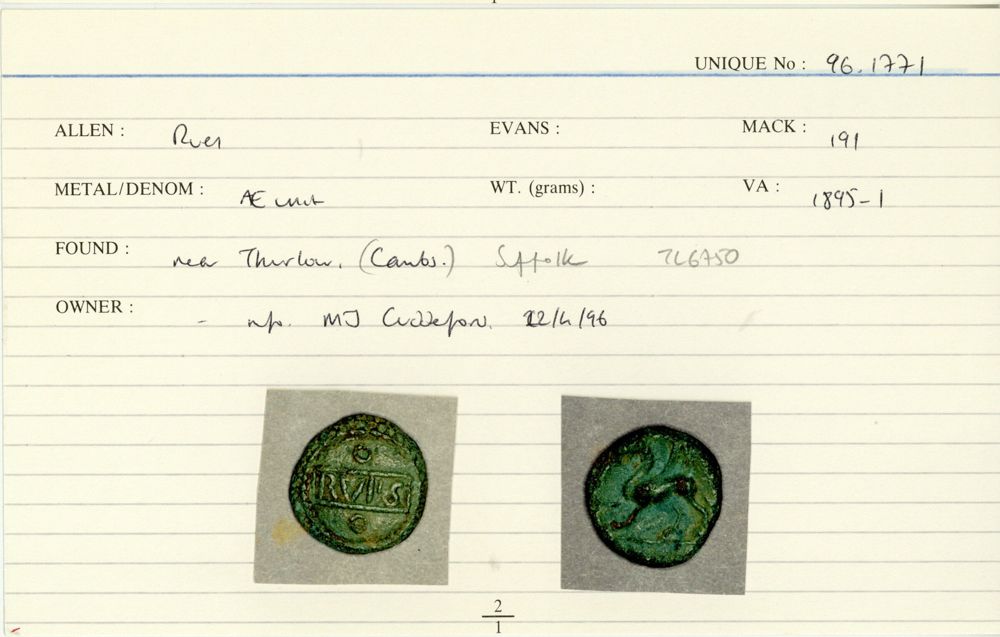 UNIQUE No : 96.1771
ALLEN : Rues EVANS : MACK : 191
METAL/DENOM : Æ unit WT. (grams) : VA : 1895-1
FOUND : near Thurlow, (Cambs.) Suffolk TL6750
OWNER : - info. MJ Cuddeford. 22/4/96
RVIIS
2
1